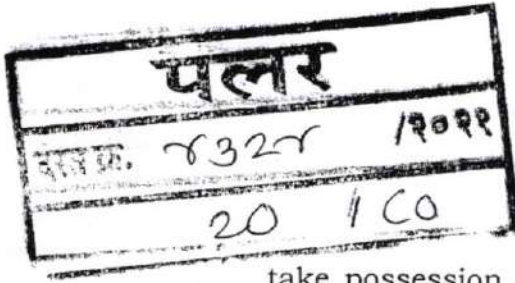 पलर
दस्त क्र. ४३२४ /२०२२
२० / ८०
take possession